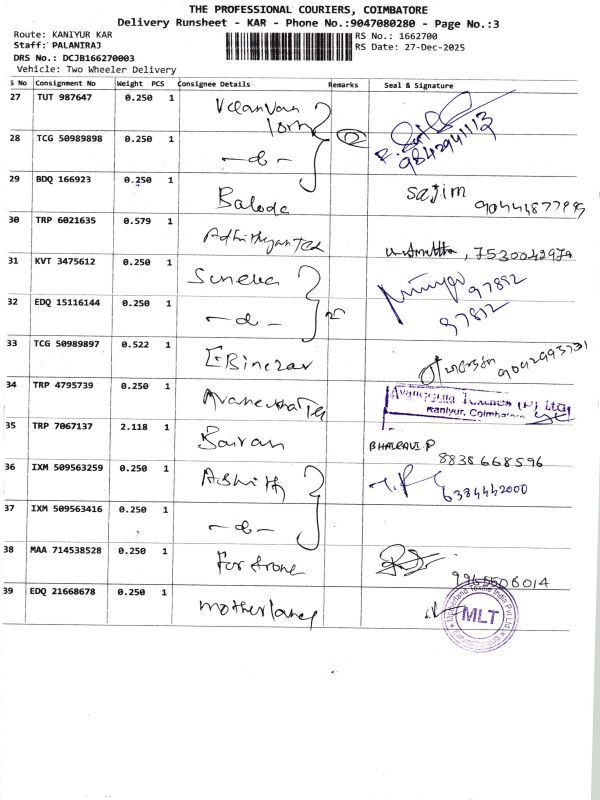 THE PROFESSIONAL COURIERS, COIMBATORE
Delivery Runsheet - KAR - Phone No.:9047080280 - Page No.:3
Route: KANIYUR KAR RS No.: 1662700
Staff: PALANIRAJ RS Date: 27-Dec-2025
DRS No.: DCJB166270003
Vehicle: Two Wheeler Delivery
S No Consignment No Weight PCS Consignee Details Remarks Seal & Signature
27 TUT 987647 0.250 1
9842941113
28 TCG 50989898 0.250 1
29 BDQ 166923 0.250 1 Baloda sajim
30 TRP 6021635 0.579 1 7530042979
31 KVT 3475612 0.250 1 97892
32 EDQ 15116144 0.250 1 97812
33 TCG 50989897 0.522 1
34 TRP 4795739 0.250 1 Kaniyur, Coimbatore
35 TRP 7067137 2.118 1 BHAIRAVI P
8838668596
36 IXM 509563259 0.250 1 6384442000
37 IXM 509563416 0.250 1
38 MAA 714538528 0.250 1 9965506014
39 EDQ 21668678 0.250 1 motherland MLT